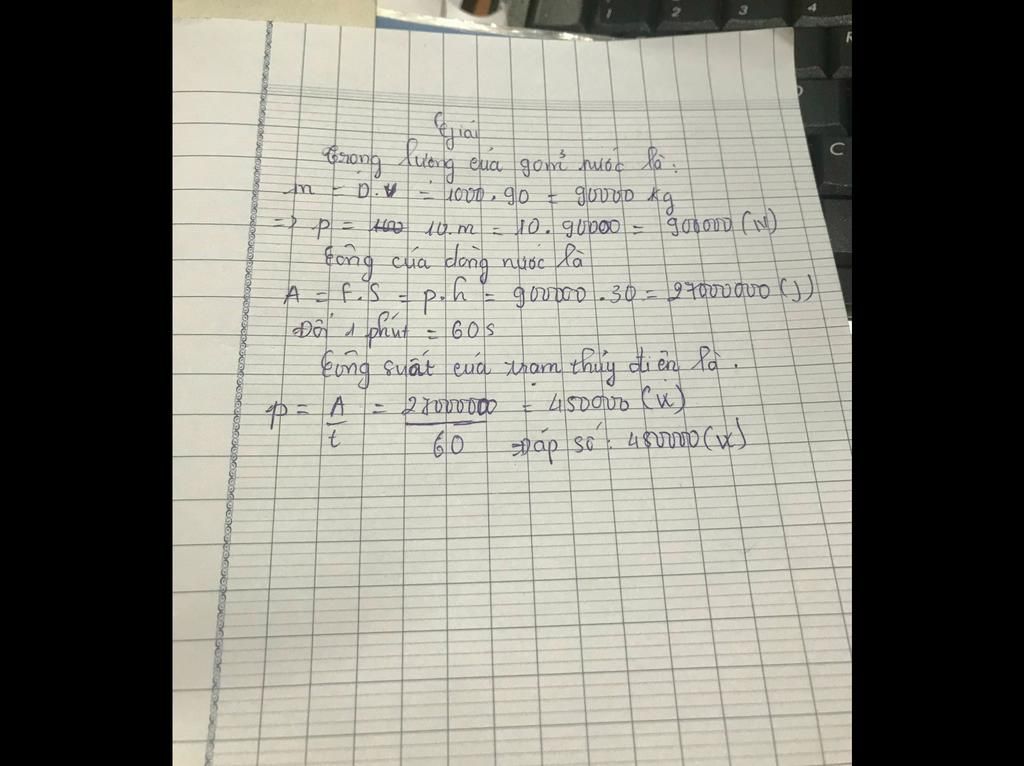 1 2 3 4
R
C
Giải
Trọng lượng của 90m³ nước là:
m = D.V = 1000.90 = 90000 kg
=> p = 10.m = 10.90000 = 900000 (N)
Công của dòng nước là
A = F.S = p.h = 900000.30 = 27000000 (J)
Đổi 1 phút = 60s
Công suất của trạm thủy điện là.
p = A/t = 27000000/60 = 450000 (W)
Đáp số: 450000 (W)